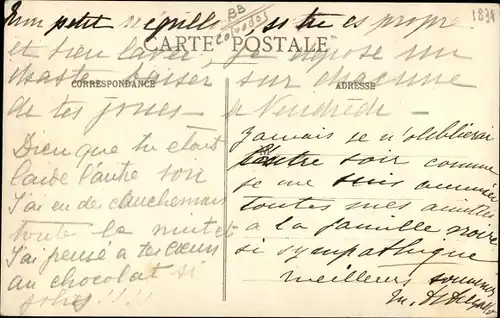 Mon petit négrillon si tu es propre
et bien lavé, je dépose un
chaste baiser sur chacune
de tes joues — à Vendredi —
BB
1834
CARTE POSTALE
CORRESPONDANCE
ADRESSE
Dieu que tu étais
laide l'autre soir
J'ai eu des cauchemars
toute la nuit et
J'ai pensé à tes cœurs
au chocolat si
jolis!!!!
Jamais je n'oublierai
l'autre soir comme
je me suis amusée
toutes mes amitiés
à la famille noire
si sympathique
meilleurs souvenirs